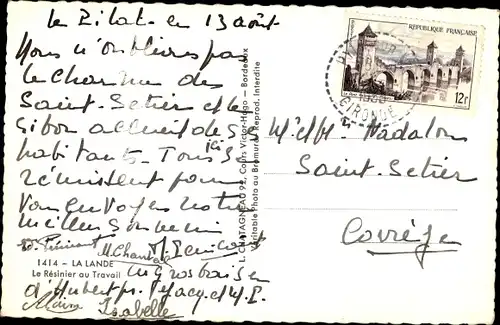 le Pilat en 13 août
Nous n'oublions pas
le charme des
Saint-Setier et le
si bon accueil de ses
habitants. Tous ici
se réunissent pour
vous envoyer notre
meilleur souvenir
M. Chan
un gros baiser
d'Hubert
Isabelle
1414 – LA LANDE
Le Résinier au Travail
L. CHATAGNEAU 92, Cours Victor-Hugo - Bordeaux
Véritable Photo au Bromure - Reprod. Interdite
REPUBLIQUE FRANÇAISE
12f
GIRONDE
M. et M. Nadalon
Saint-Setier
Corrèze